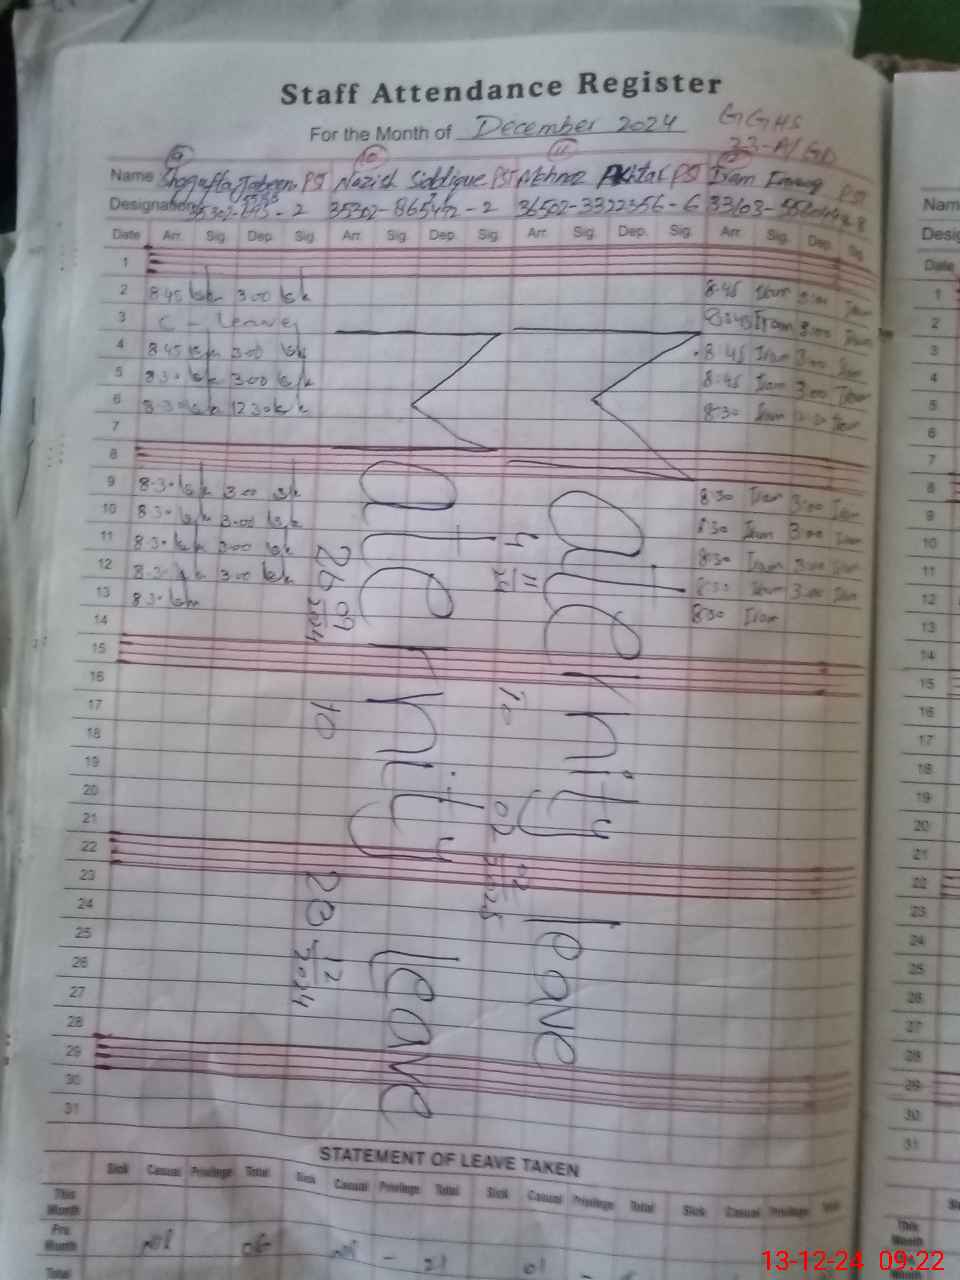 Staff Attendance Register
For the Month of December 2024
GGHS
9 10 11
Name Shagufta PST Nazish Siddique PST Mehnaz Akhtar PST Iram PST
Designation 35302-865472-2 36502-3322356-6 33103-
Date Arr. Sig. Dep. Sig. Arr. Sig. Dep. Sig. Arr. Sig. Dep. Sig. Arr. Sig. Dep. Sig.
1
2 8.45 3.00 8.45 Iram 3:00 Iram
3 C - Leave 8:45 Iram 3:00 Iram
4 8.45 3.00 8:45 Iram 3:00 Iram
5 8.30 3.00 8:45 Iram 3:00 Iram
6 8.30 12.30 8:30 Iram Iram
7
8
9 8.30 3.00 8:30 Iram 3:00 Iram
10 8.30 3.00 8:30 Iram 3:00 Iram
11 8.30 3.00 8:30 Iram 3:00 Iram
12 8.30 3.00 8:30 Iram 3:00 Iram
13 8.30 8:30 Iram
14
15
16
17
18
19
20
21
22
23
24
25
26
27
28
29
30
31
Maternity leave
26 09 2024 to 28 12 2024
Maternity leave
4 11 24 to 02 02 2025
STATEMENT OF LEAVE TAKEN
Sick Casual Privilege Total Sick Casual Privilege Total Sick Casual Privilege Total Sick Casual Privilege Total
This Month
Pre Month Nil 06 Nil - 21 01 -
Total
Name
Desig
Date
1
2
3
4
5
6
7
8
9
10
11
12
13
14
15
16
17
18
19
20
21
22
23
24
25
26
27
28
29
30
31
This Month
13-12-24 09:22